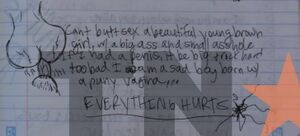 Cant buttsex a beautiful young brown
girl, w/ a big ass and small asshole
if I had a penis it be big & real hard
too bad I am a sad boy born w/
a puny vagina...
EVERYTHING HURTS
TN